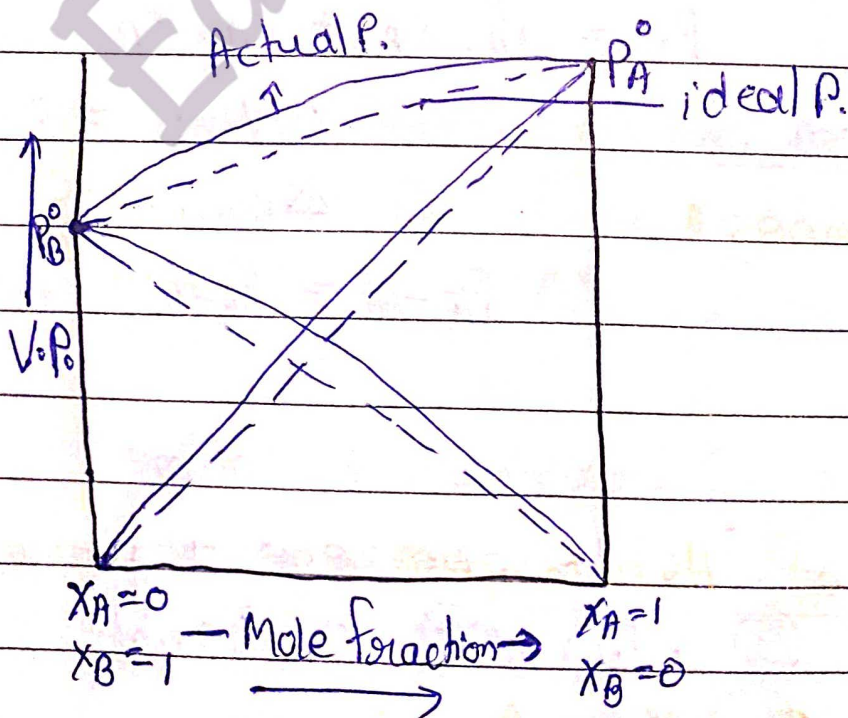 Actual P.
P°A
ideal P.
P°B
V.P.
XA=0
XB=1
— Mole fraction→
XA=1
XB=0